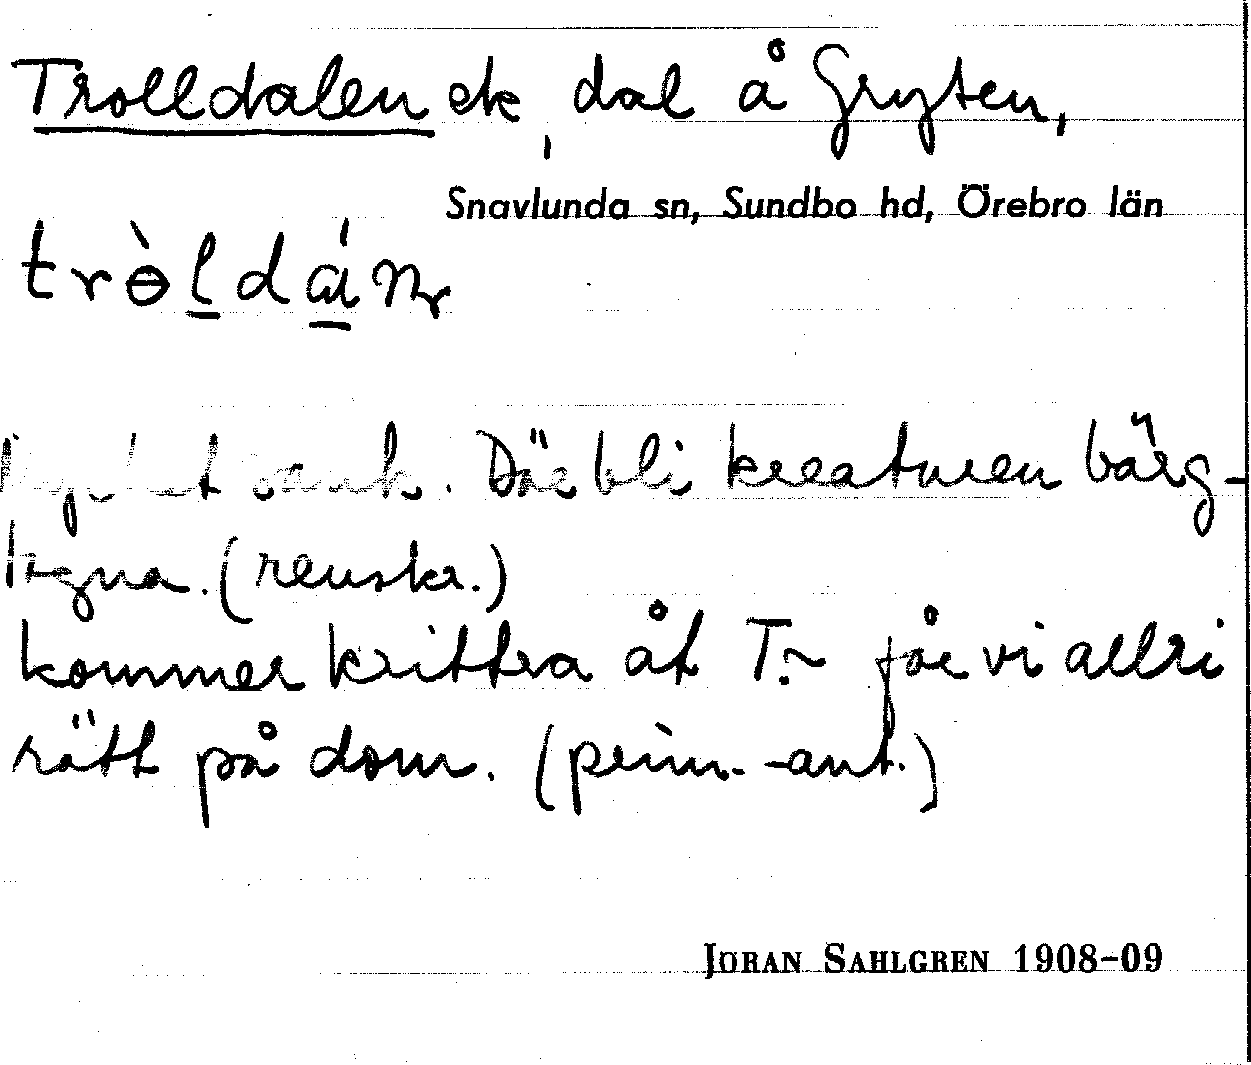 Trolldalen ek, dal å Gryten,
Snavlunda sn, Sundbo hd, Örebro län
trɵ̀ldán
sank. Där bli kreaturen bärg-
tagna. (renskr.)
kommer krittra åt T.~ får vi allri
rätt på dom. (prim.-ant.)
JÖRAN SAHLGREN 1908-09